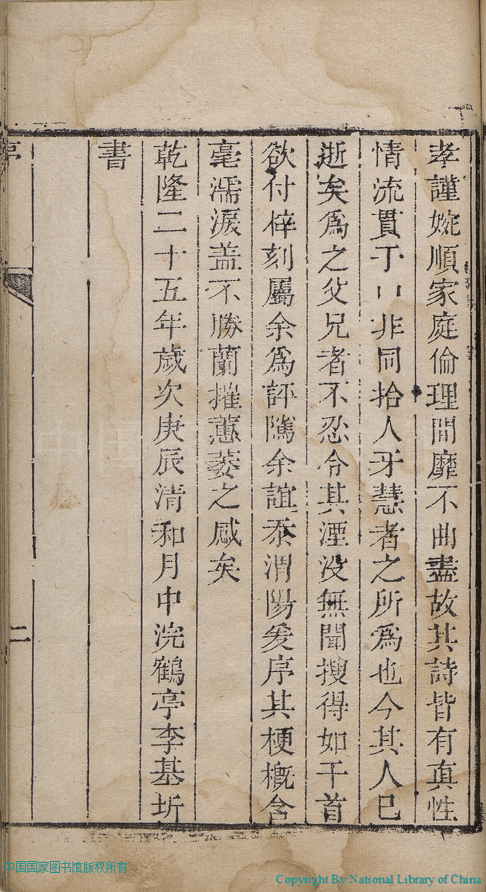 孝謹婉順家庭倫理間靡不曲盡故其詩皆有真性
情流貫于口非同拾人牙慧者之所爲也今其人已
逝矣爲之父兄者不忍令其湮没無聞搜得如干首
欲付梓刻屬余爲評隲余誼忝渭陽爰序其梗槪含
毫濡淚盖不勝蘭摧蕙萎之感矣
乾隆二十五年歲次庚辰清和月中浣鶴亭李基圻
書
二
中国国家图书馆版权所有
Copyright By National Library of China